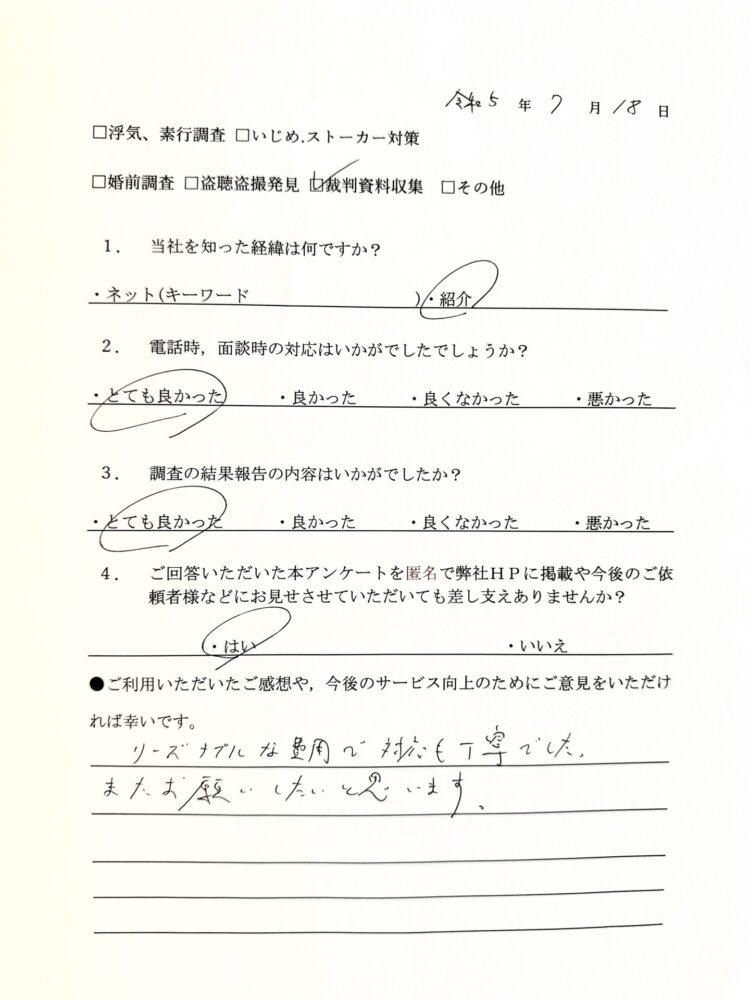 令和5 年 7 月 18 日
□浮気、素行調査 □いじめ.ストーカー対策
□婚前調査 □盗聴盗撮発見 ☑裁判資料収集 □その他
1． 当社を知った経緯は何ですか？
・ネット(キーワード )・紹介
2． 電話時，面談時の対応はいかがでしたでしょうか？
・とても良かった ・良かった ・良くなかった ・悪かった
3． 調査の結果報告の内容はいかがでしたか？
・とても良かった ・良かった ・良くなかった ・悪かった
4． ご回答いただいた本アンケートを匿名で弊社ＨＰに掲載や今後のご依
頼者様などにお見せさせていただいても差し支えありませんか？
・はい ・いいえ
●ご利用いただいたご感想や，今後のサービス向上のためにご意見をいただけ
れば幸いです。
リーズナブルな費用で対応も丁寧でした。
またお願いしたいと思います。